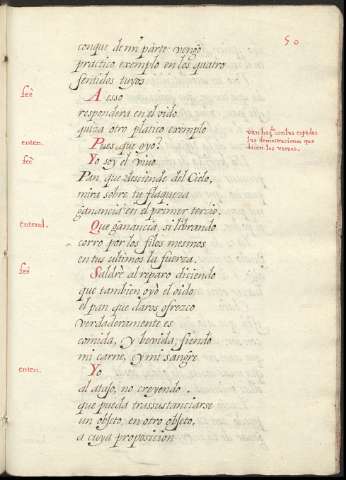 50
conque de mi parte vengo
practico exemplo en los quatro
sentidos tuyos.
feè
A esso
respondera en el oido
quiza otro platico exemplo
enten.
Pues, que oyo?
feè
Yo soy el vivo
Pan, que desciende del Cielo,
mira sobre tu flaqueza
ganancia en el primer tercio.
entend.
Que ganancia, si librando
corro por los filos mesmos
en tus ultimos la fuerza.
feè
Saldrè al reparo diciendo
que tambien oyò el oido
el pan que daros ofrezco
verdaderamente es
comida, y bevida, siendo
mi carne, y mi sangre
enten.
Yo
al atajo, no creyendo
que pueda transsustanciarse
un objeto, en otro objeto,
a cuya proposicion
con las espadas
las demostraciones que
dicen los versos.